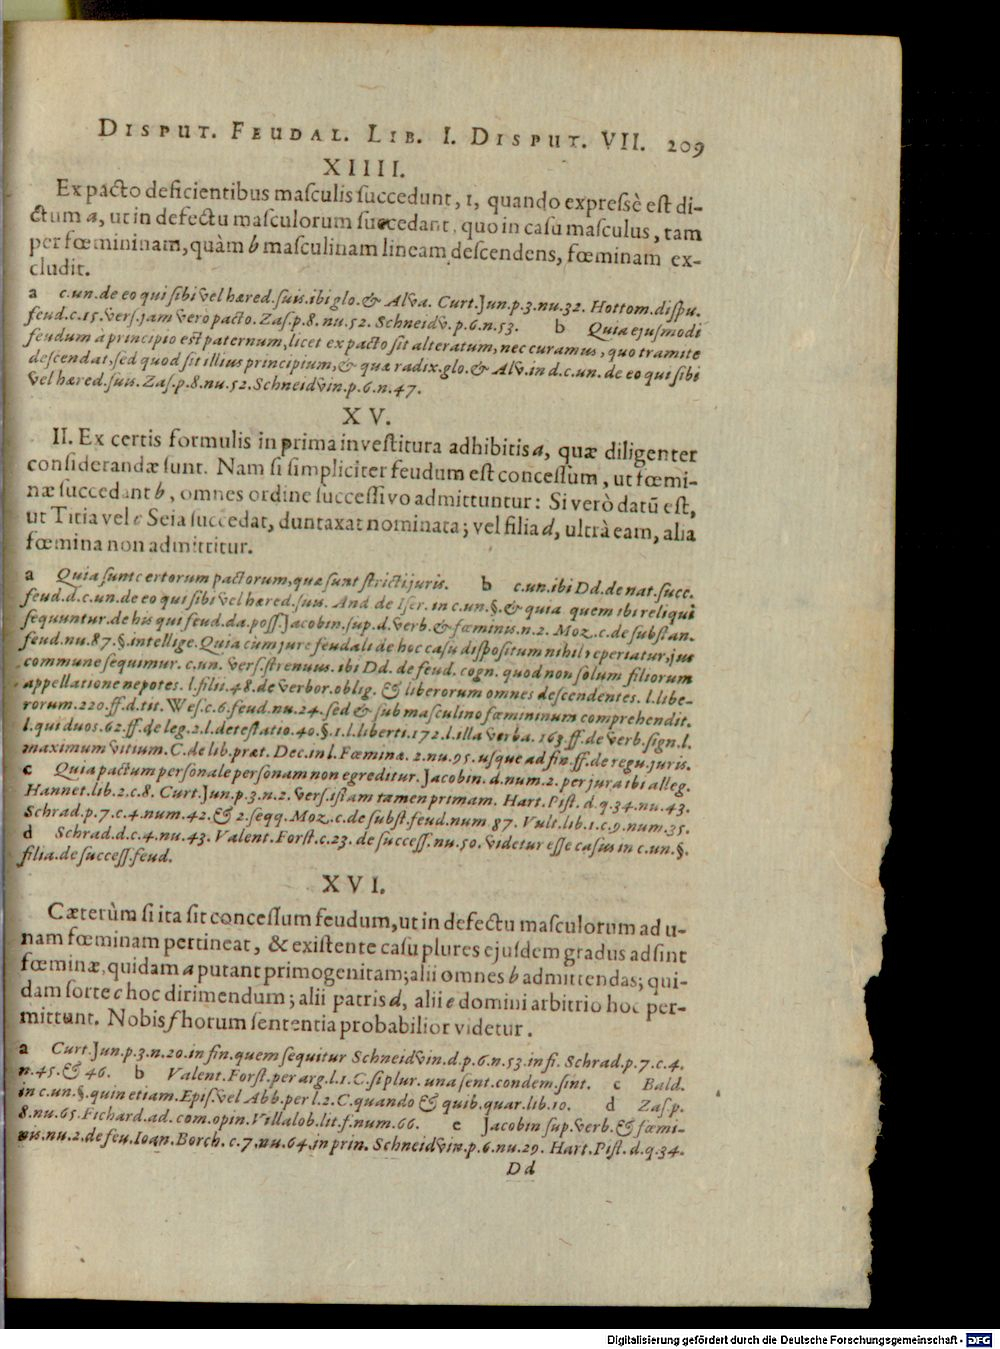 DISPUT. FEUDAL. LIB. I. DISPUT. VII. 209
XIIII.
Ex pacto deficientibus masculis succedunt, 1, quando expressè est di-
ctum a, ut in defectu masculorum succedant, quo in casu masculus, tam
per fœmininam, quàm b masculinam lineam descendens, fœminam ex-
cludit.
a c.un.de eo qui sibi vel hæred.suis.ibi glo.& Alva. Curt.Jun.p.3.nu.32. Hottom.dispu.
feud.c.15.vers.jam vero pacto. Zas.p.8.nu.52. Schneidv.p.6.n.53. b Quia ejusmodi
feudum à principio est paternum, licet ex pacto sit alteratum, nec curamus, quo tramite
descendat, sed quod sit illius principium, & quæ radix.glo.& Alv.in d.c.un.de eo qui sibi
vel hæred.suis. Zas.p.8.nu.52.Schneidvin.p.6.n.47.
XV.
II. Ex certis formulis in prima investitura adhibitis a, quæ diligenter
considerandæ sunt. Nam si simpliciter feudum est concessum, ut fœmi-
næ succedant b, omnes ordine successivo admittuntur: Si verò datū est,
ut Titia vel c Seia succedat, duntaxat nominata; vel filia d, ultrà eam, alia
fœmina non admittitur.
a Quia sunt certorum pactorum, quæ sunt stricti juris. b c.un.ibi Dd.de nat.succ.
feud.d.c.un.de eo qui sibi vel hæred.suis. And de Iser. in c.un.§.& quia quem ibi reliqui
sequuntur.de his qui feud.da.poss.Jacobin.sup.d.verb.& fœminis.n.2. Moz.c.de substan.
feud.nu.87.§.intellige.Quia cùm jure feudali de hoc casu dispositum nihil reperiatur, jus
commune sequimur. c.un. vers.strenuus. ibi Dd. de feud. cogn. quod non solum filiorum
appellatione nepotes. l.filii.48.de verbor.oblig. & liberorum omnes descendentes. l.libe-
rorum.220.ff.d.tit. Wes.c.6.feud.nu.24.sed & sub masculino fœmininum comprehendit.
l.qui duos.62.ff.de leg.2.l.detestatio.40.§.1.l.liberti.172.l.illa verba. 163.ff.de verb.sign.l.
maximum vitium. C.de lib.præt. Dec.in l.Fœminæ. 2.nu.95.usque ad fin.ff.de regu.juris.
c Quia pactum personale personam non egreditur. Jacobin. d.num.2. per jura ibi alleg.
Hannet.lib.2.c.8. Curt.Jun.p.3.n.2. Vers.istam tamen primam. Hart. Pist. d.q.34.nu.43.
Schrad.p.7.c.4.num.42.& 2.seqq. Moz.c.de subst.feud.num 87. Vult.lib.1.c.9.num.35.
d Schrad.d.c.4.nu.43. Valent.Forst.c.23. de success.nu.50. videtur esse casus in c.un.§.
filia.de success.feud.
XVI.
Cæterùm si ita sit concessum feudum, ut in defectu masculorum ad u-
nam fœminam pertineat, & existente casu plures ejusdem gradus adsint
fœminæ, quidam a putant primogenitam; alii omnes b admittendas; qui-
dam sorte c hoc dirimendum; alii patris d, alii e domini arbitrio hoc per-
mittunt. Nobis f horum sententia probabilior videtur.
a Curt.Jun.p.3.n.20.in fin.quem sequitur Schneidvin.d.p.6.n.53.in fi. Schrad.p.7.c.4.
n.45.& 46. b Valent.Forst.per arg.l.1.C.si plur. una sent.condem.sint. c Bald.
in c.un.§.quin etiam.Epis.vel Abb.per l.2.C.quando & quib.quar.lib.10. d Zas.p.
8.nu.65.Fichard.ad.com.opin.Villalob.lit.f.num.66. e Jacobin sup.verb.& fœmi-
nis.nu.2.de feu.Ioan.Borch.c.7.nu.64.in prin. Schneidvin.p.6.nu.29. Hart.Pist.d.q.34.
Dd
Digitalisierung gefördert durch die Deutsche Forschungsgemeinschaft - DFG